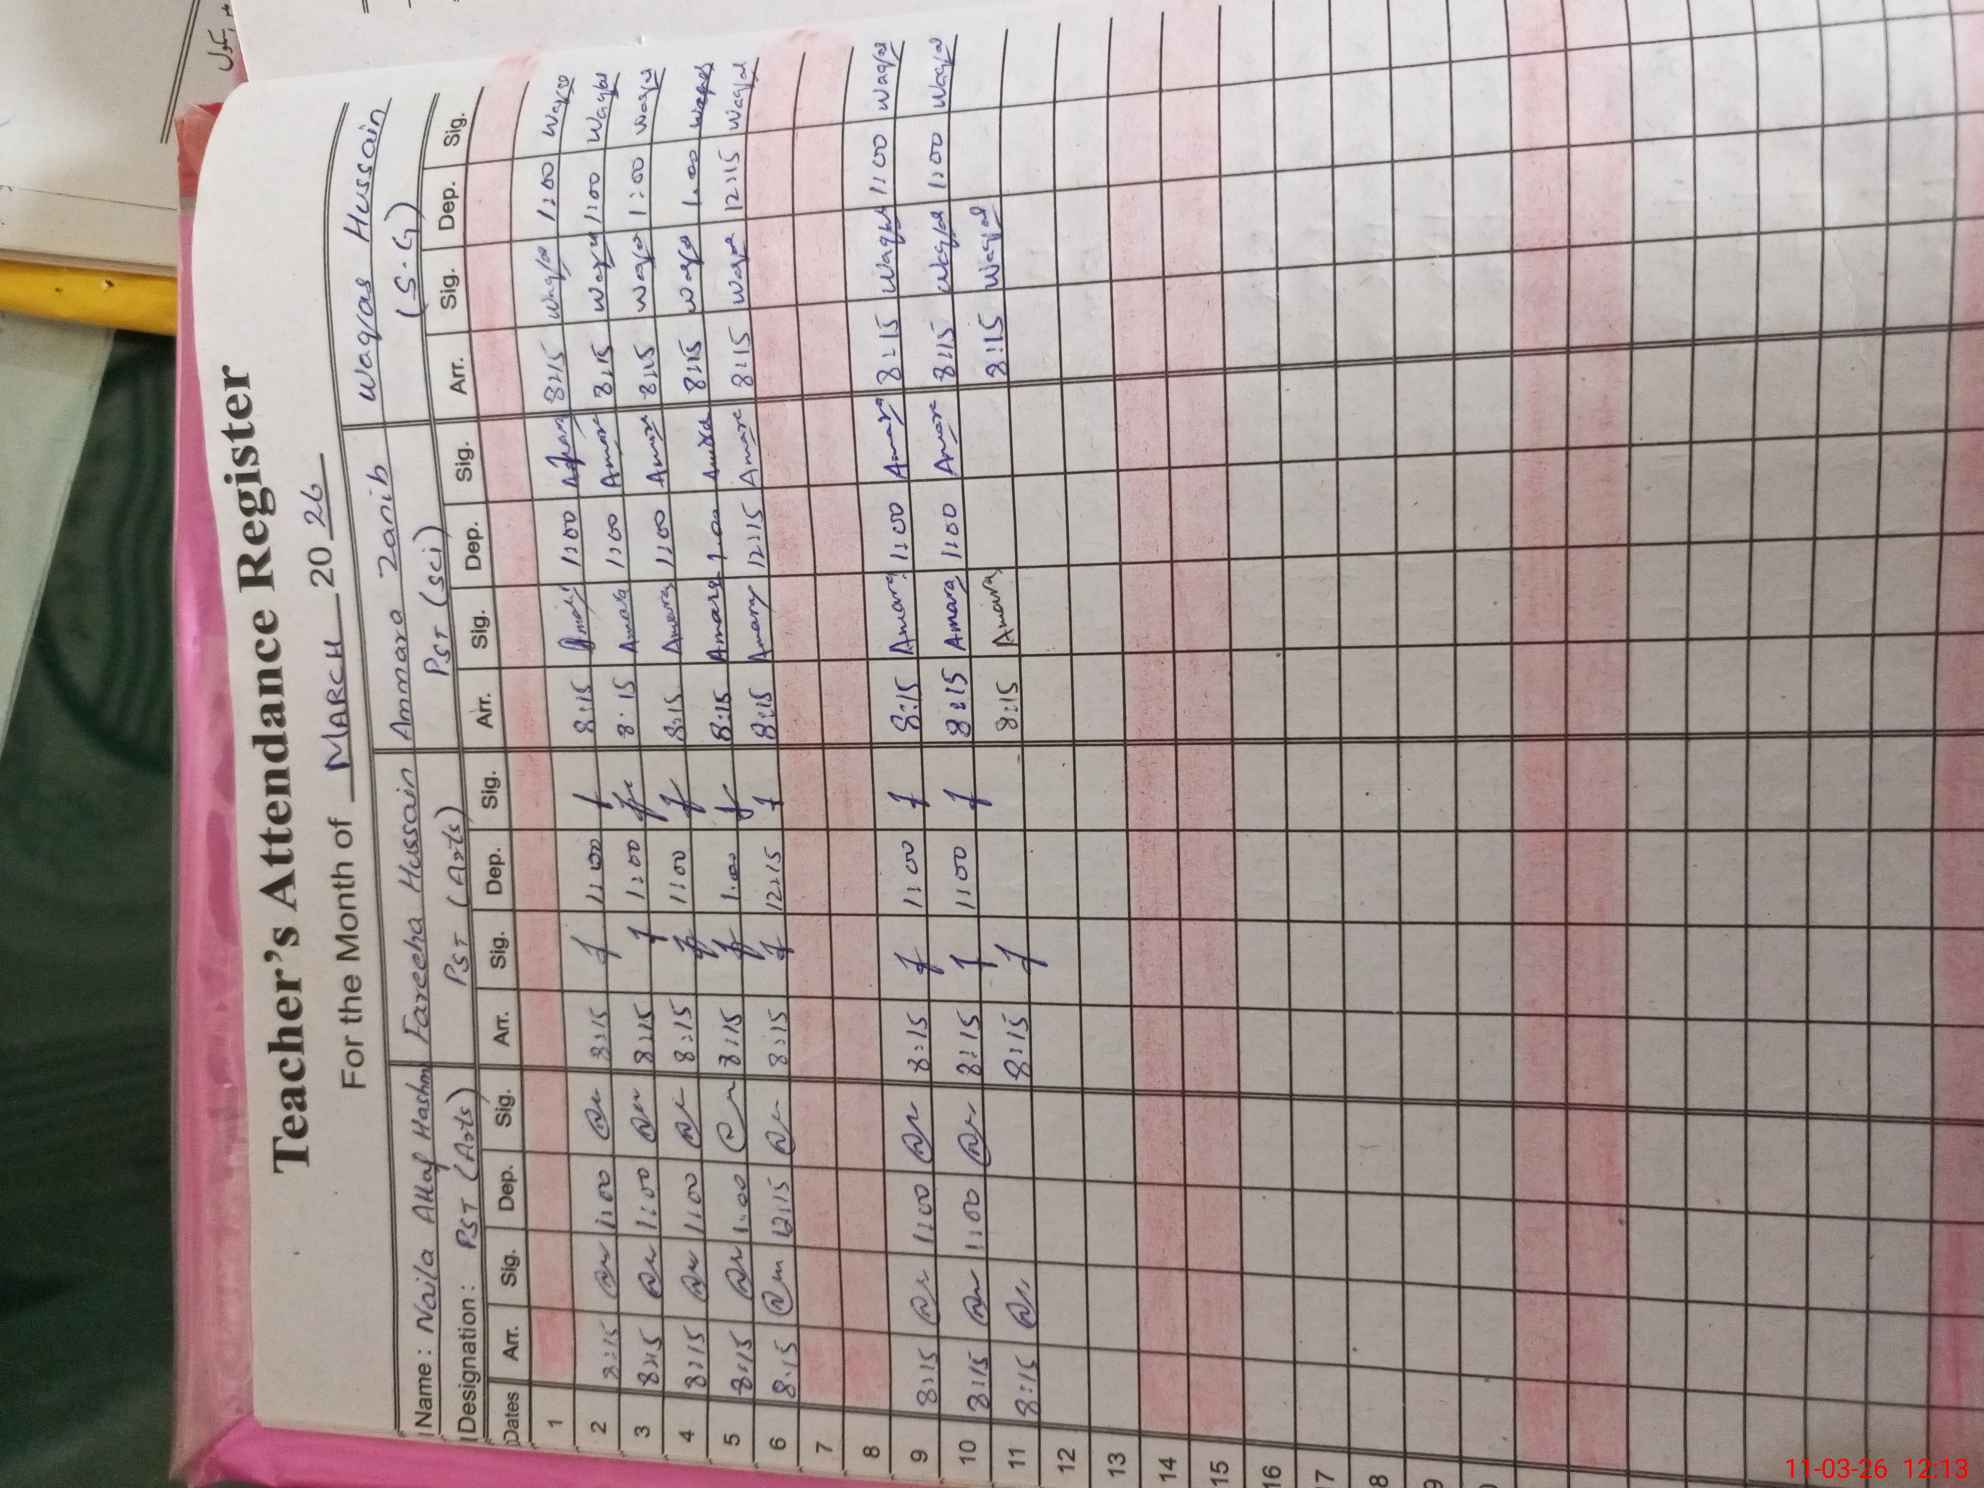 Teacher's Attendance Register
For the Month of MARCH 2026
Name: Naila Altaf Hashmi Fareeha Hussain Ammara Zanib Waqas Hussain
Designation: PST (Arts) PST (Arts) PST (Sci) (S.G)
Dates Arr. Sig. Dep. Sig. Arr. Sig. Dep. Sig. Arr. Sig. Dep. Sig. Arr. Sig. Dep. Sig.
1
2 8:15 1:00 8:15 1:00 8:15 Amara 1:00 Amara 8:15 Waqas 1:00 Waqas
3 8:15 1:00 8:15 1:00 8:15 Amara 1:00 Amara 8:15 Waqas 1:00 Waqas
4 8:15 1:00 8:15 1:00 8:15 Amara 1:00 Amara 8:15 Waqas 1:00 Waqas
5 8:15 1:00 8:15 1:00 8:15 Amara 1:00 Amara 8:15 Waqas 1:00 Waqas
6 8:15 12:15 8:15 12:15 8:15 Amara 12:15 Amara 8:15 Waqas 12:15 Waqas
7
8
9 8:15 1:00 8:15 1:00 8:15 Amara 1:00 Amara 8:15 Waqas 1:00 Waqas
10 8:15 1:00 8:15 1:00 8:15 Amara 1:00 Amara 8:15 Waqas 1:00 Waqas
11 8:15 8:15 8:15 Amara 8:15 Waqas
12
13
14
15
16
17
8
9
11-03-26 12:13